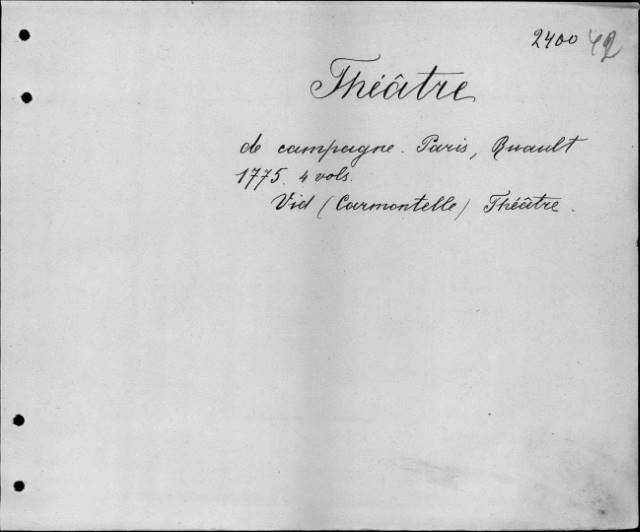 2400 42
Théâtre
de campagne. Paris, Ruault
1775. 4 vols.
Vid (Carmontelle) Théâtre.